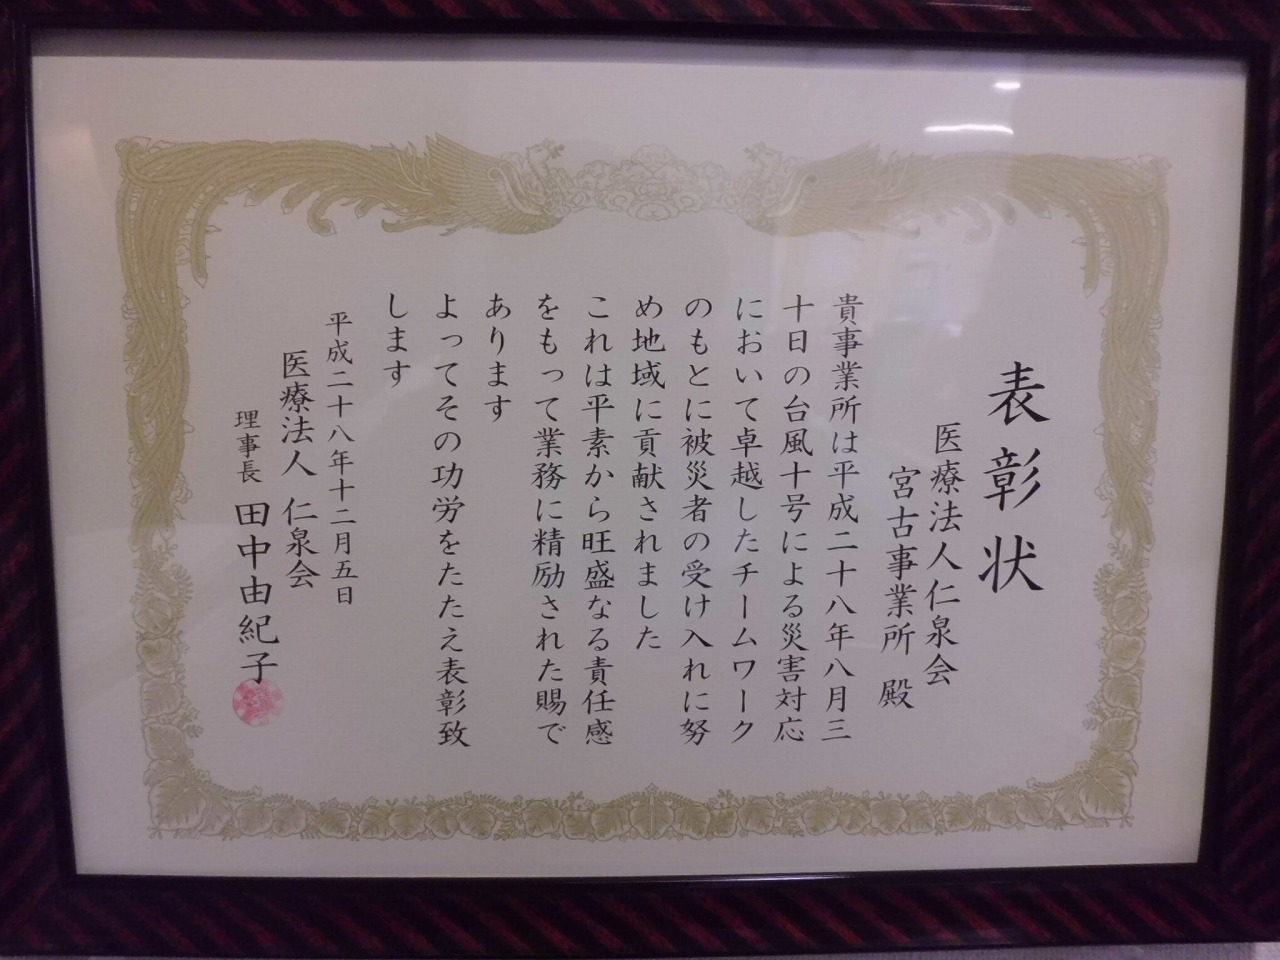 表彰状
医療法人仁泉会
宮古事業所 殿
貴事業所は平成二十八年八月三
十日の台風十号による災害対応
において卓越したチームワーク
のもとに被災者の受け入れに努
め地域に貢献されました
これは平素から旺盛なる責任感
をもって業務に精励された賜で
あります
よってその功労をたたえ表彰致
します
平成二十八年十二月五日
医療法人 仁泉会
理事長 田中由紀子